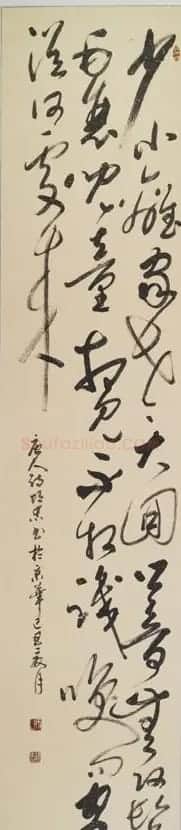 少小離家老大回鄉音無改鬢
毛衰兒童相見不相識咲问客
從何處來
唐人詩
書於京華己丑
秋月